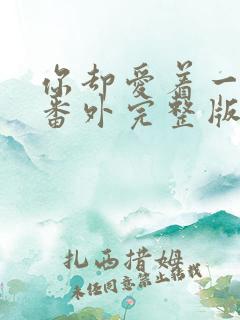 你却爱着一
番外完整版
扎西措姆
未经同意禁止转载